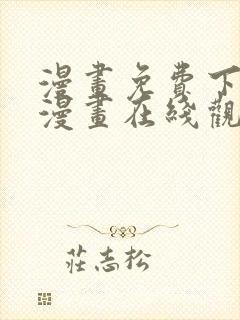 漫畫免費下
漫畫在綫觀
莊志松